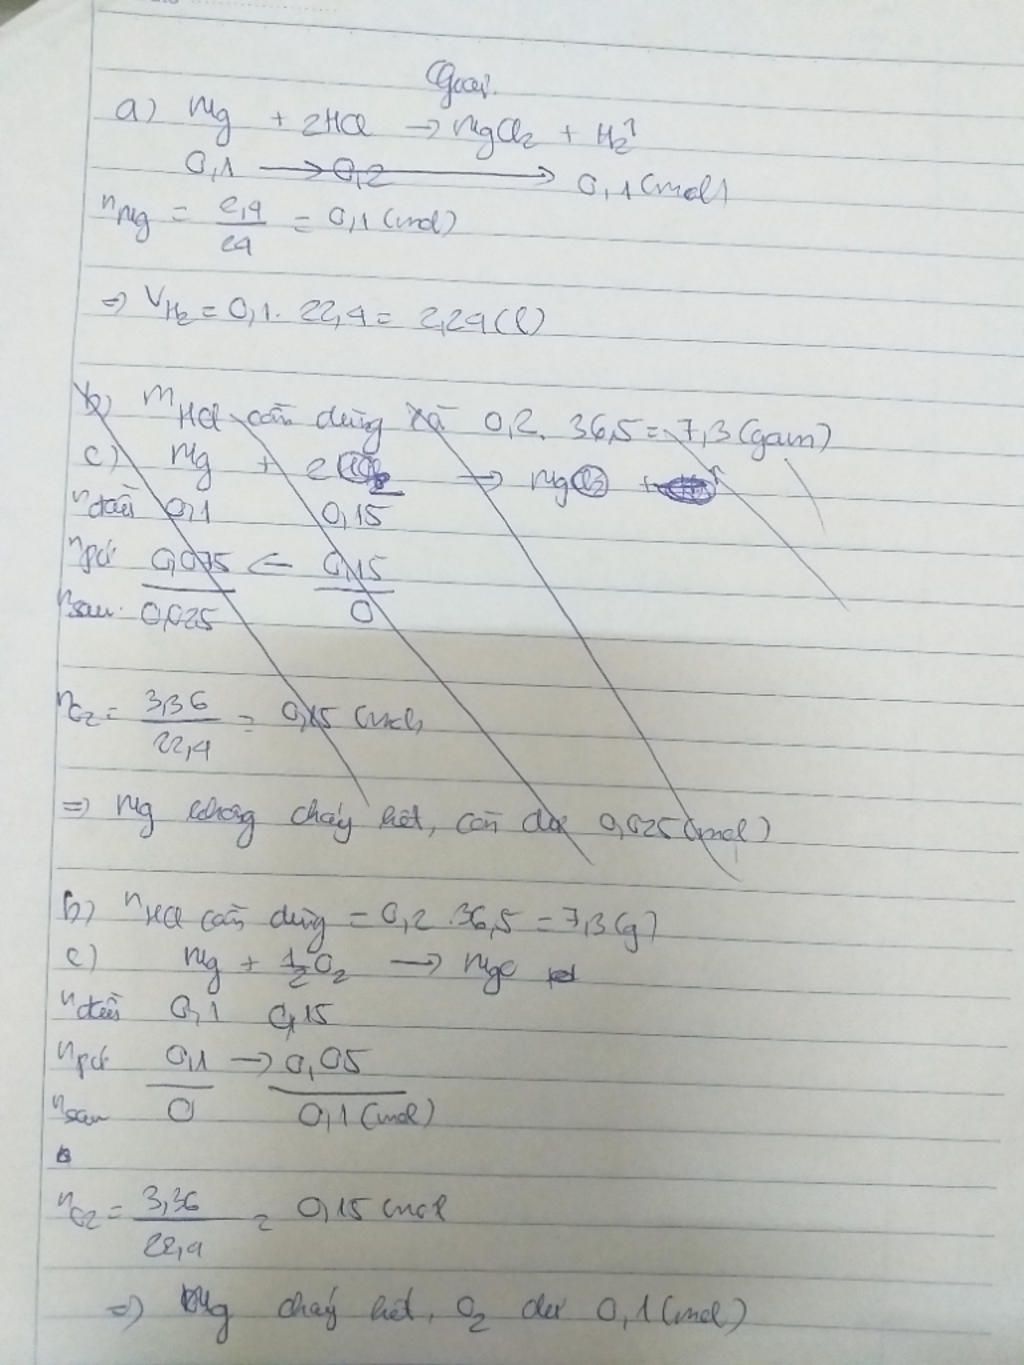 Giải.
a) Mg + 2HCl → MgCl₂ + H₂↑
0,1 → 0,2 → 0,1 (mol)
nMg = 2,4/24 = 0,1 (mol)
⇒ VH₂ = 0,1 . 22,4 = 2,24 (l)
b) mHCl cần dùng là 0,2 . 36,5 = 7,3 (gam)
c) Mg + 2 → MgCl₂ +
nđầu 0,1 0,15
npứ 0,075 ← 0,15
nsau 0,025 0
nO₂ = 3,36/22,4 = 0,15 (mol)
⇒ Mg không cháy hết, còn dư 0,025 (mol)
b) nHCl cần dùng = 0,2 . 36,5 = 7,3 (g)
c) Mg + 1/2 O₂ → MgO
nđầu 0,1 0,15
npứ 0,1 → 0,05
nsau 0 0,1 (mol)
nO₂ = 3,36/22,4 = 0,15 mol
⇒ Mg cháy hết, O₂ dư 0,1 (mol)